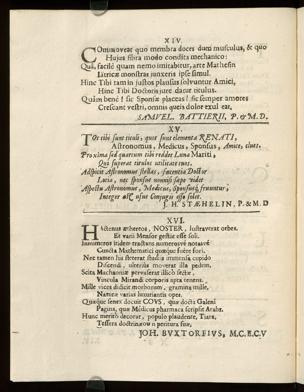 XIV.
Commoveat quo membra doces dum musculus, & quo
Hujus fibra modo condita mechanico:
Quâ, facilè quam nemo imitabitur, arte Mathesin
Et rica monstras junxeris ipse simul.
Hinc Tibi tam in justos plausus solvuntur Amici,
Hinc Tibi Doctoris jure datur titulus.
Quàm benè! sic Sponsæ placeas! sic semper amores
Crescant vestri, omnis queis dolor exul eat,
SAMUEL. BATTIERII, P. & M.D.
XV.
Tot tibi sunt tituli, quot sunt elementa RENATI,
Astronomus, Medicus, Sponsus, Amice, clues.
Proxima sed quartum tibi reddet Luna Mariti;
Qui superat titulos utilitate tres.
Adspicit Astronomus stellas, facientia Doctor
sæpe videt
Aspectu Astronomus, Medicus, Sponsusq; fruuntur,
Integer ast usus Conjugis esse solet.
J. H. STÆHELIN, P. & M.D
XVI.
Hactenus æthereos, NOSTER, lustraverat orbes.
Et varii Mensor gestit esse soli.
Innumeros itidem tractans numerosve notavit
Cuncta Mathematici quæque fuere fori.
Nec tamen his steterat studiis immensa cupido
Discendi, ulterius moverat illa pedem.
Scita Machaoniæ pervaserat illico sectæ,
Vincula Mirandi corporis apta tenens.
Mille vices didicit morborum, gramina mille,
Namve varius luxuriantis opes.
Quæque senex docuit COUS, quæ docta Galeni
Pagina, quæ Medicus pharmaca scripsit Arabs.
Hunc meritò decorat, populo plaudente, Tiara,
Tessera doctrinæ non peritura suæ,
JOH. BUXTORFIUS, M.C.E.C.V